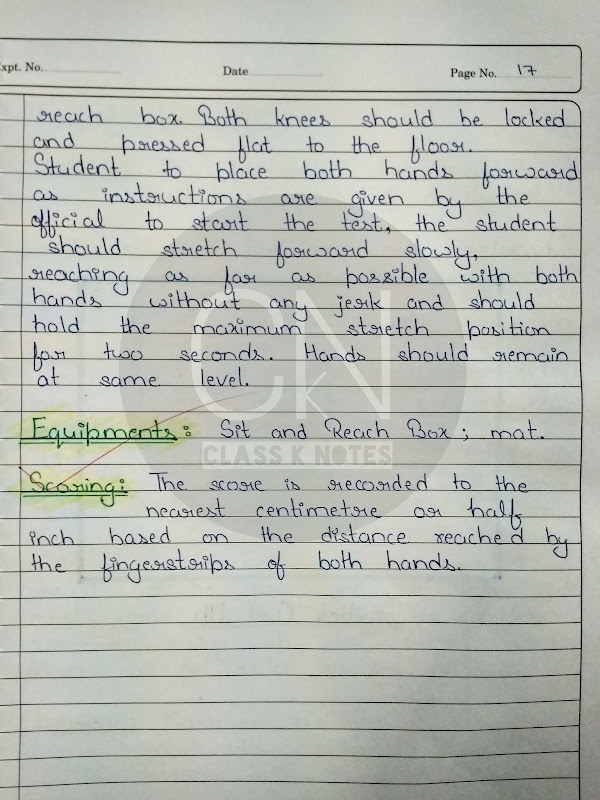 Expt. No.
Date
Page No. 17
reach box. Both knees should be locked
and pressed flat to the floor.
Student to place both hands forward
as instructions are given by the
official to start the test, the student
should stretch forward slowly,
reaching as far as possible with both
hands without any jerk and should
hold the maximum stretch position
for two seconds. Hands should remain
at same level.
Equipments: Sit and Reach Box; mat.
CN
K
CLASS K NOTES
Scoring: The score is recorded to the
nearest centimetre or half
inch based on the distance reached by
the fingerstrips of both hands.